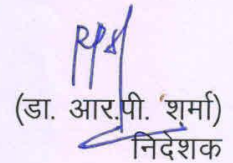 (डा. आर.पी. शर्मा)
निदेशक